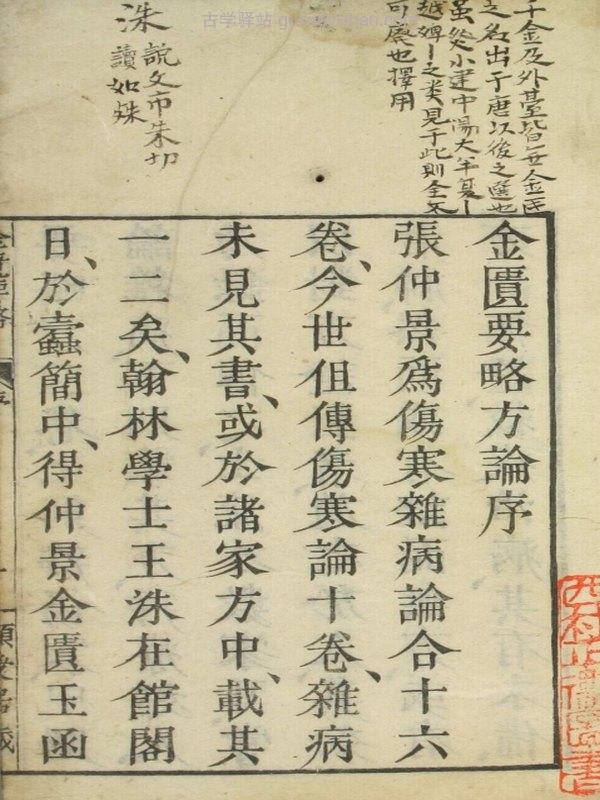 千金及外臺皆無金匱
之名出于唐以後之選也
虽然小建中湯大半夏丨
越婢丨之类見于此則全不
可廢也擇用
洙 説文市朱切
讀如殊
金匱要略方論序
張仲景爲傷寒雜病論合十六
卷、今世但傳傷寒論十卷、雜病
未見其書、或於諸家方中、載其
一二矣、翰林學士王洙在館閣
日、於蠹簡中、得仲景金匱玉函
古学驿站